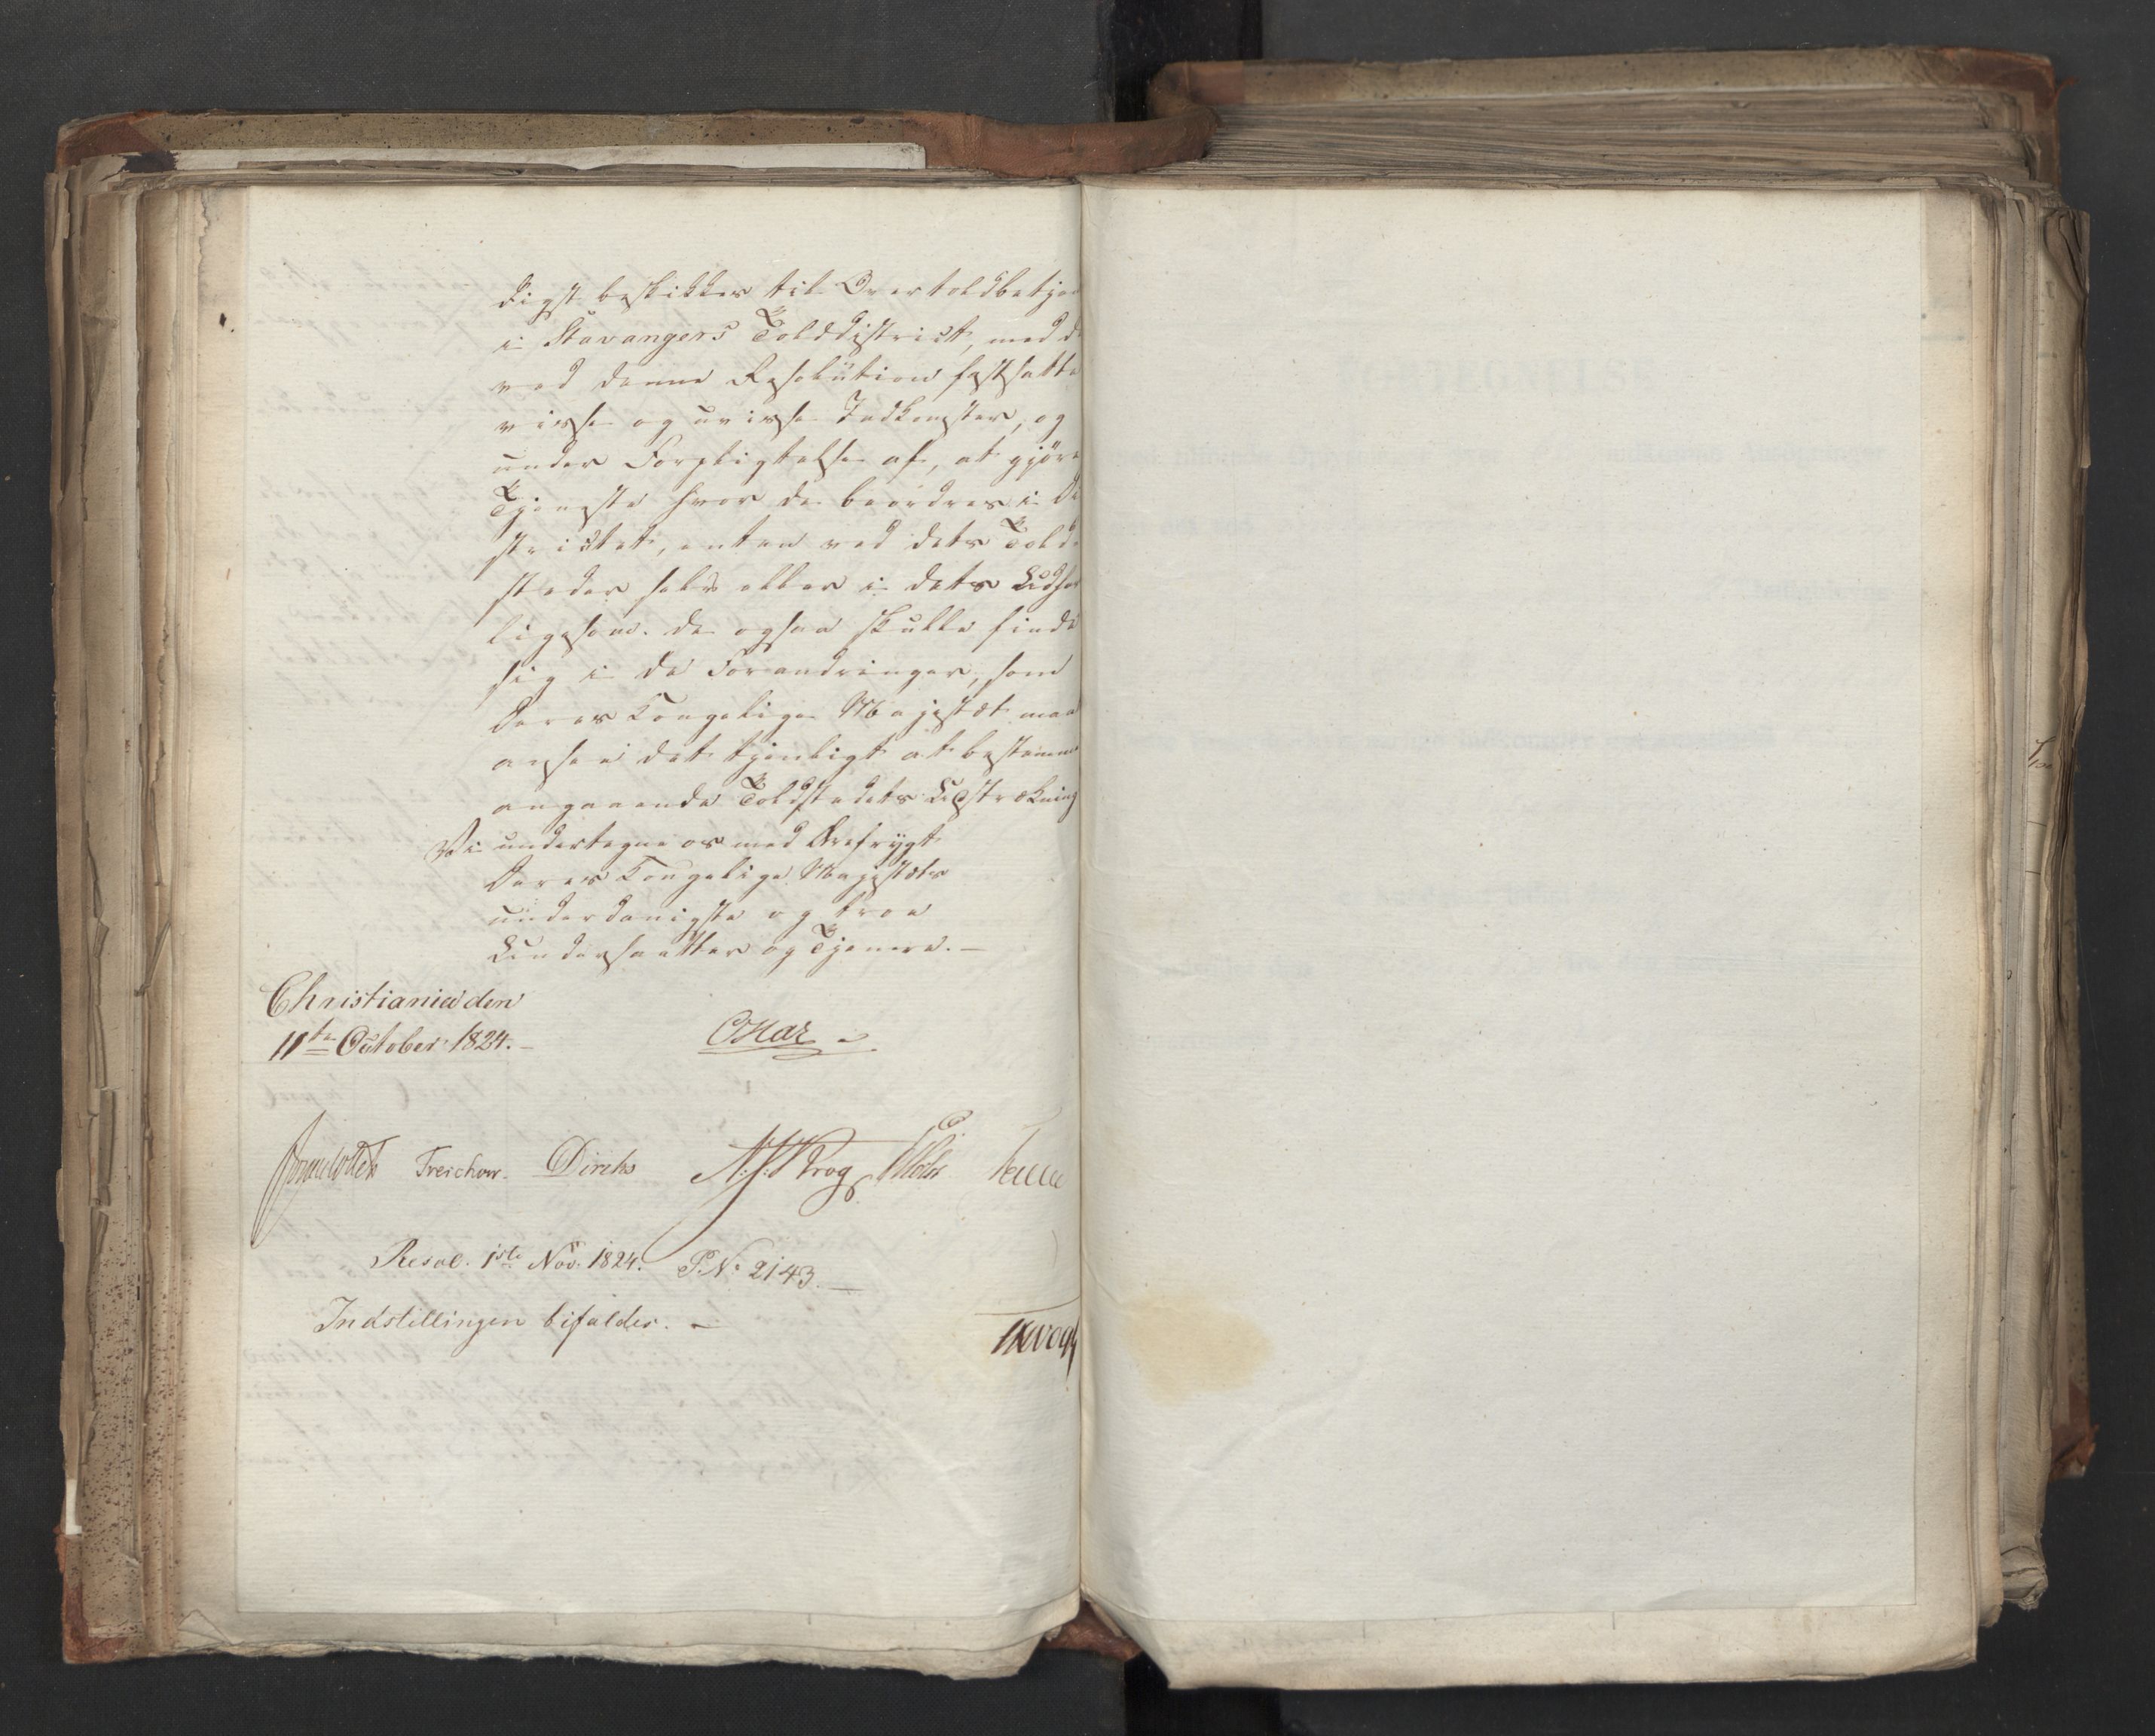 digst beskikkes til Overtoldbetjen
i Stavangers Tolddistrict, med d
ved denne Resolution fastsatte
visse og uvisse Indkomster, og
under Forpligtelse af, at gjöre
Tjeneste hvor de beordres i Di
strictet, enten ved dets Told-
steder selv eller i dets Udhav
ligesom de ogsaa skulle finde
sig i de Forandringer, som
Deres Kongelige Majestæt maa
ansee det tjenligt at bestemme
angaaende Toldstedets Udstrækning
Vi undertegne os med Ærefrygt
Deres Kongelige Majestæts
underdanigste og troe
Undersaatter og Tjenere. —
Christiania den
11te October 1824. —
Oscar
Treschow. Diriks N. J. Krog
Resol. 1ste Nov. 1824. P. No 2143. —
Indstillingen bifaldes. —